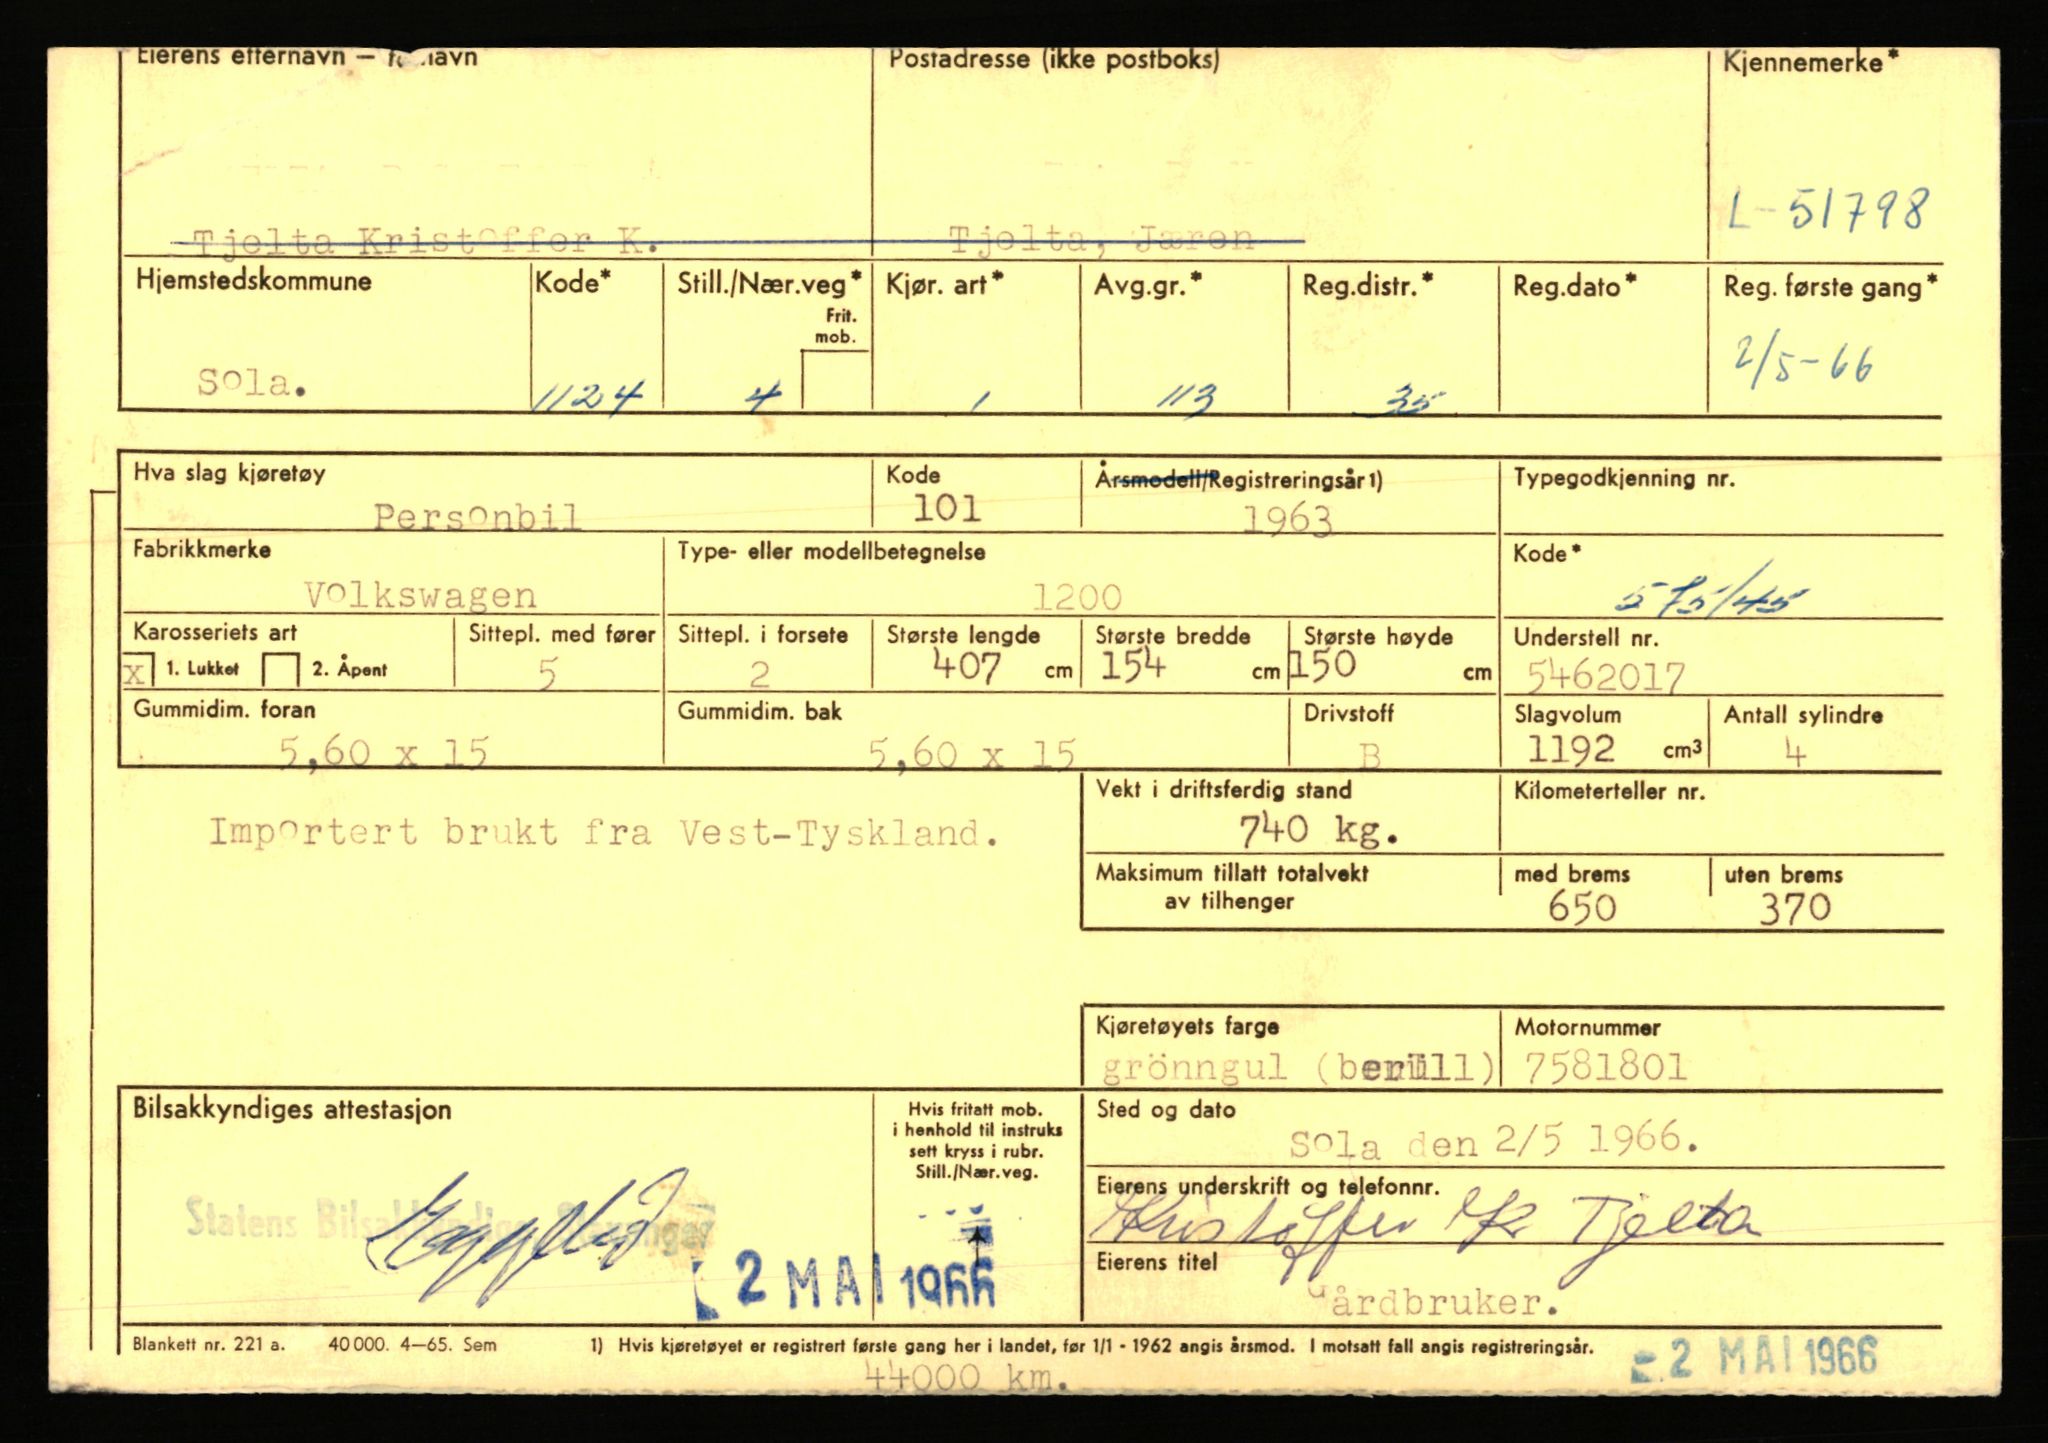 Eierens efternavn — fornavn Postadresse (ikke postboks) Kjennemerke*
L-51798
Tjelta Kristoffer K. Tjelta, Jæren
Hjemstedskommune Kode* Still./Nær.veg* Kjør. art* Avg.gr.* Reg.distr.* Reg.dato* Reg. første gang*
Frit.
mob.
2/5-66
Sola. 1124 4 1 113 35
Hva slag kjøretøy Kode Årsmodell/Registreringsår 1) Typegodkjenning nr.
Personbil 101 1963
Fabrikkmerke Type- eller modellbetegnelse Kode*
Volkswagen 1200 575/45
Karosseriets art Sittepl. med fører Sittepl. i forsete Største lengde Største bredde Største høyde Understell nr.
x 1. Lukket 2. Åpent 5 2 407 cm 154 cm 150 cm 5462017
Gummidim. foran Gummidim. bak Drivstoff Slagvolum Antall sylindre
5,60 x 15 5,60 x 15 B 1192 cm3 4
Vekt i driftsferdig stand Kilometerteller nr.
Importert brukt fra Vest-Tyskland. 740 kg.
Maksimum tillatt totalvekt med brems uten brems
av tilhenger 650 370
Kjøretøyets farge Motornummer
grönngul (berüll) 7581801
Bilsakkyndiges attestasjon Hvis fritatt mob. Sted og dato
i henhold til instruks
sett kryss i rubr.
Still./Nær.veg.
Sola den 2/5 1966.
Eierens underskrift og telefonnr.
Statens Bilsakkyndige Stavanger Kristoffer K Tjelta
Eierens titel
2 MAI 1966 Gårdbruker.
Blankett nr. 221 a. 40 000. 4—65. Sem 1) Hvis kjøretøyet er registrert første gang her i landet, før 1/1 - 1962 angis årsmod. I motsatt fall angis registreringsår.
2 MAI 1966
44000 km.